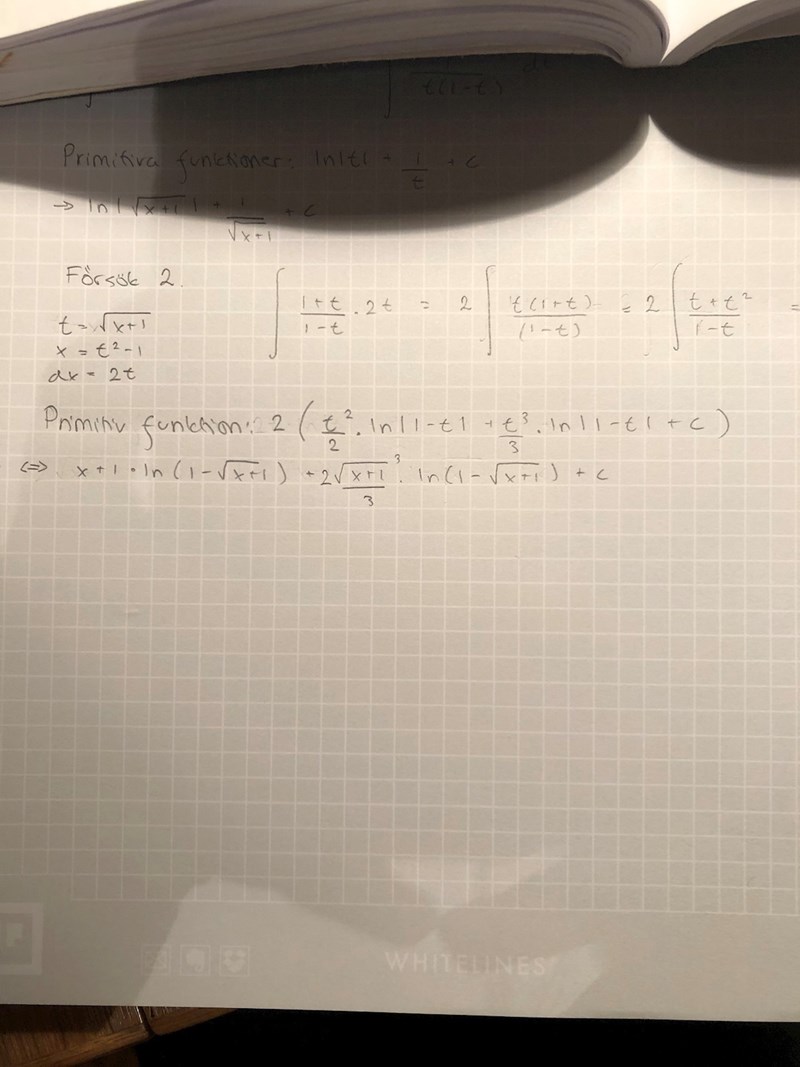 t(1-t) dt
Primitiva funktioner: ln|t| + 1/t + c
→ ln|√(x+1)| + 1/√(x+1) + c
Försök 2.
t = √(x+1)
x = t² - 1
dx = 2t
∫ (1+t)/(1-t) · 2t = 2 ∫ t(1+t)/(1-t) = 2 ∫ (t+t²)/(1-t) =
Primitiv funktion: 2 ( t²/2 · ln|1-t| + t³/3 · ln|1-t| + c )
<=> x+1 · ln(1-√(x+1)) + 2√(x+1)³/3 · ln(1-√(x+1)) + c
WHITELINES